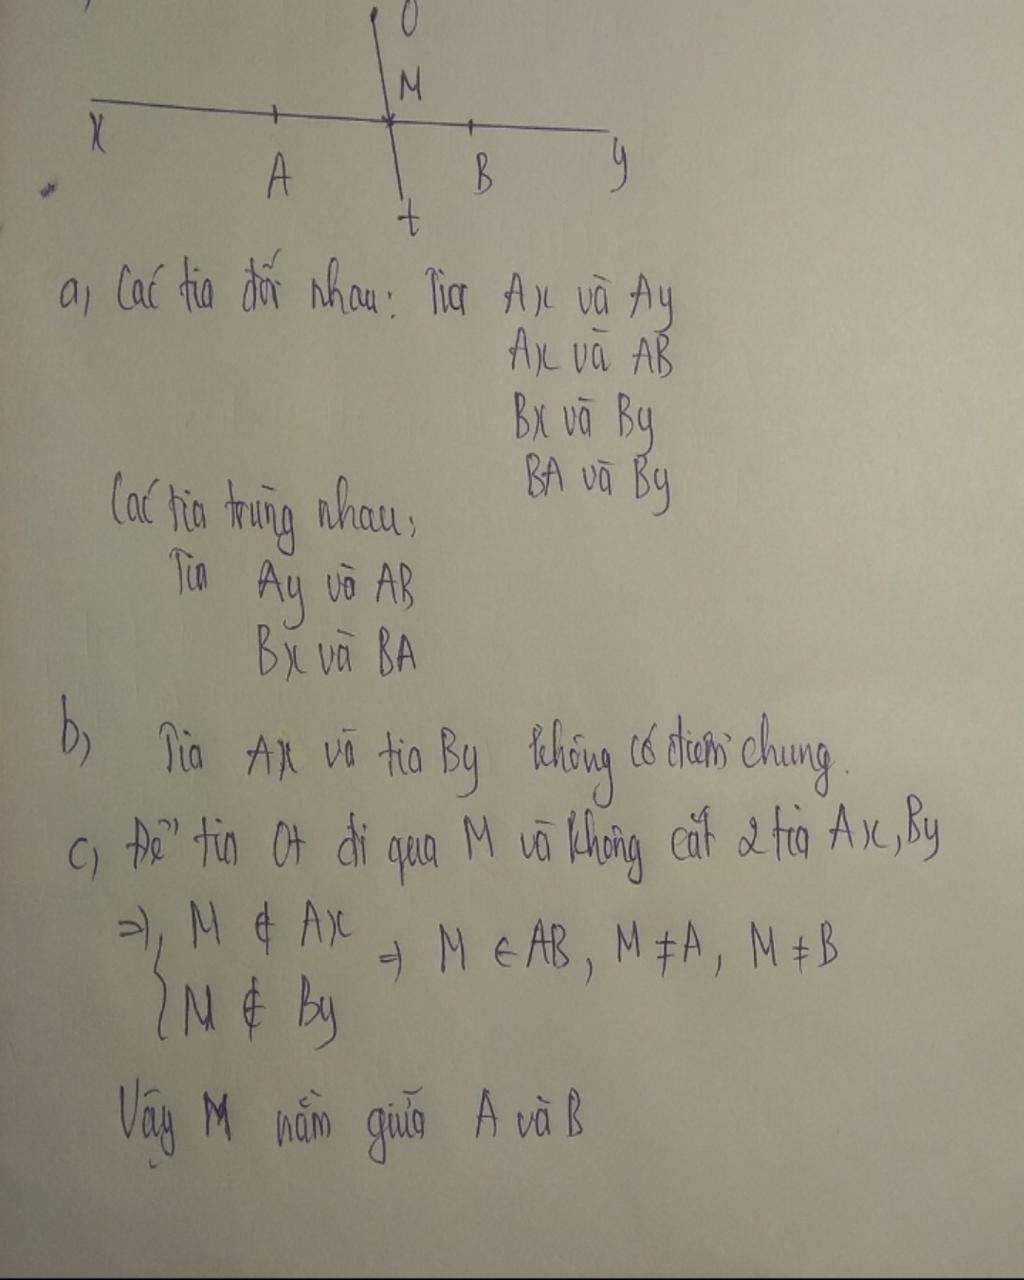 O
M
x
A
B
y
t
a, Các tia đối nhau: Tia Ax và Ay
Ax và AB
Bx và By
BA và By
Các tia trùng nhau:
Tia Ay và AB
Bx và BA
b, Tia Ax và tia By không có điểm chung.
c, Để tia Ot đi qua M và không cắt 2 tia Ax, By
=> { M ∉ Ax
M ∉ By
=> M ∈ AB, M ≠ A, M ≠ B
Vậy M nằm giữa A và B